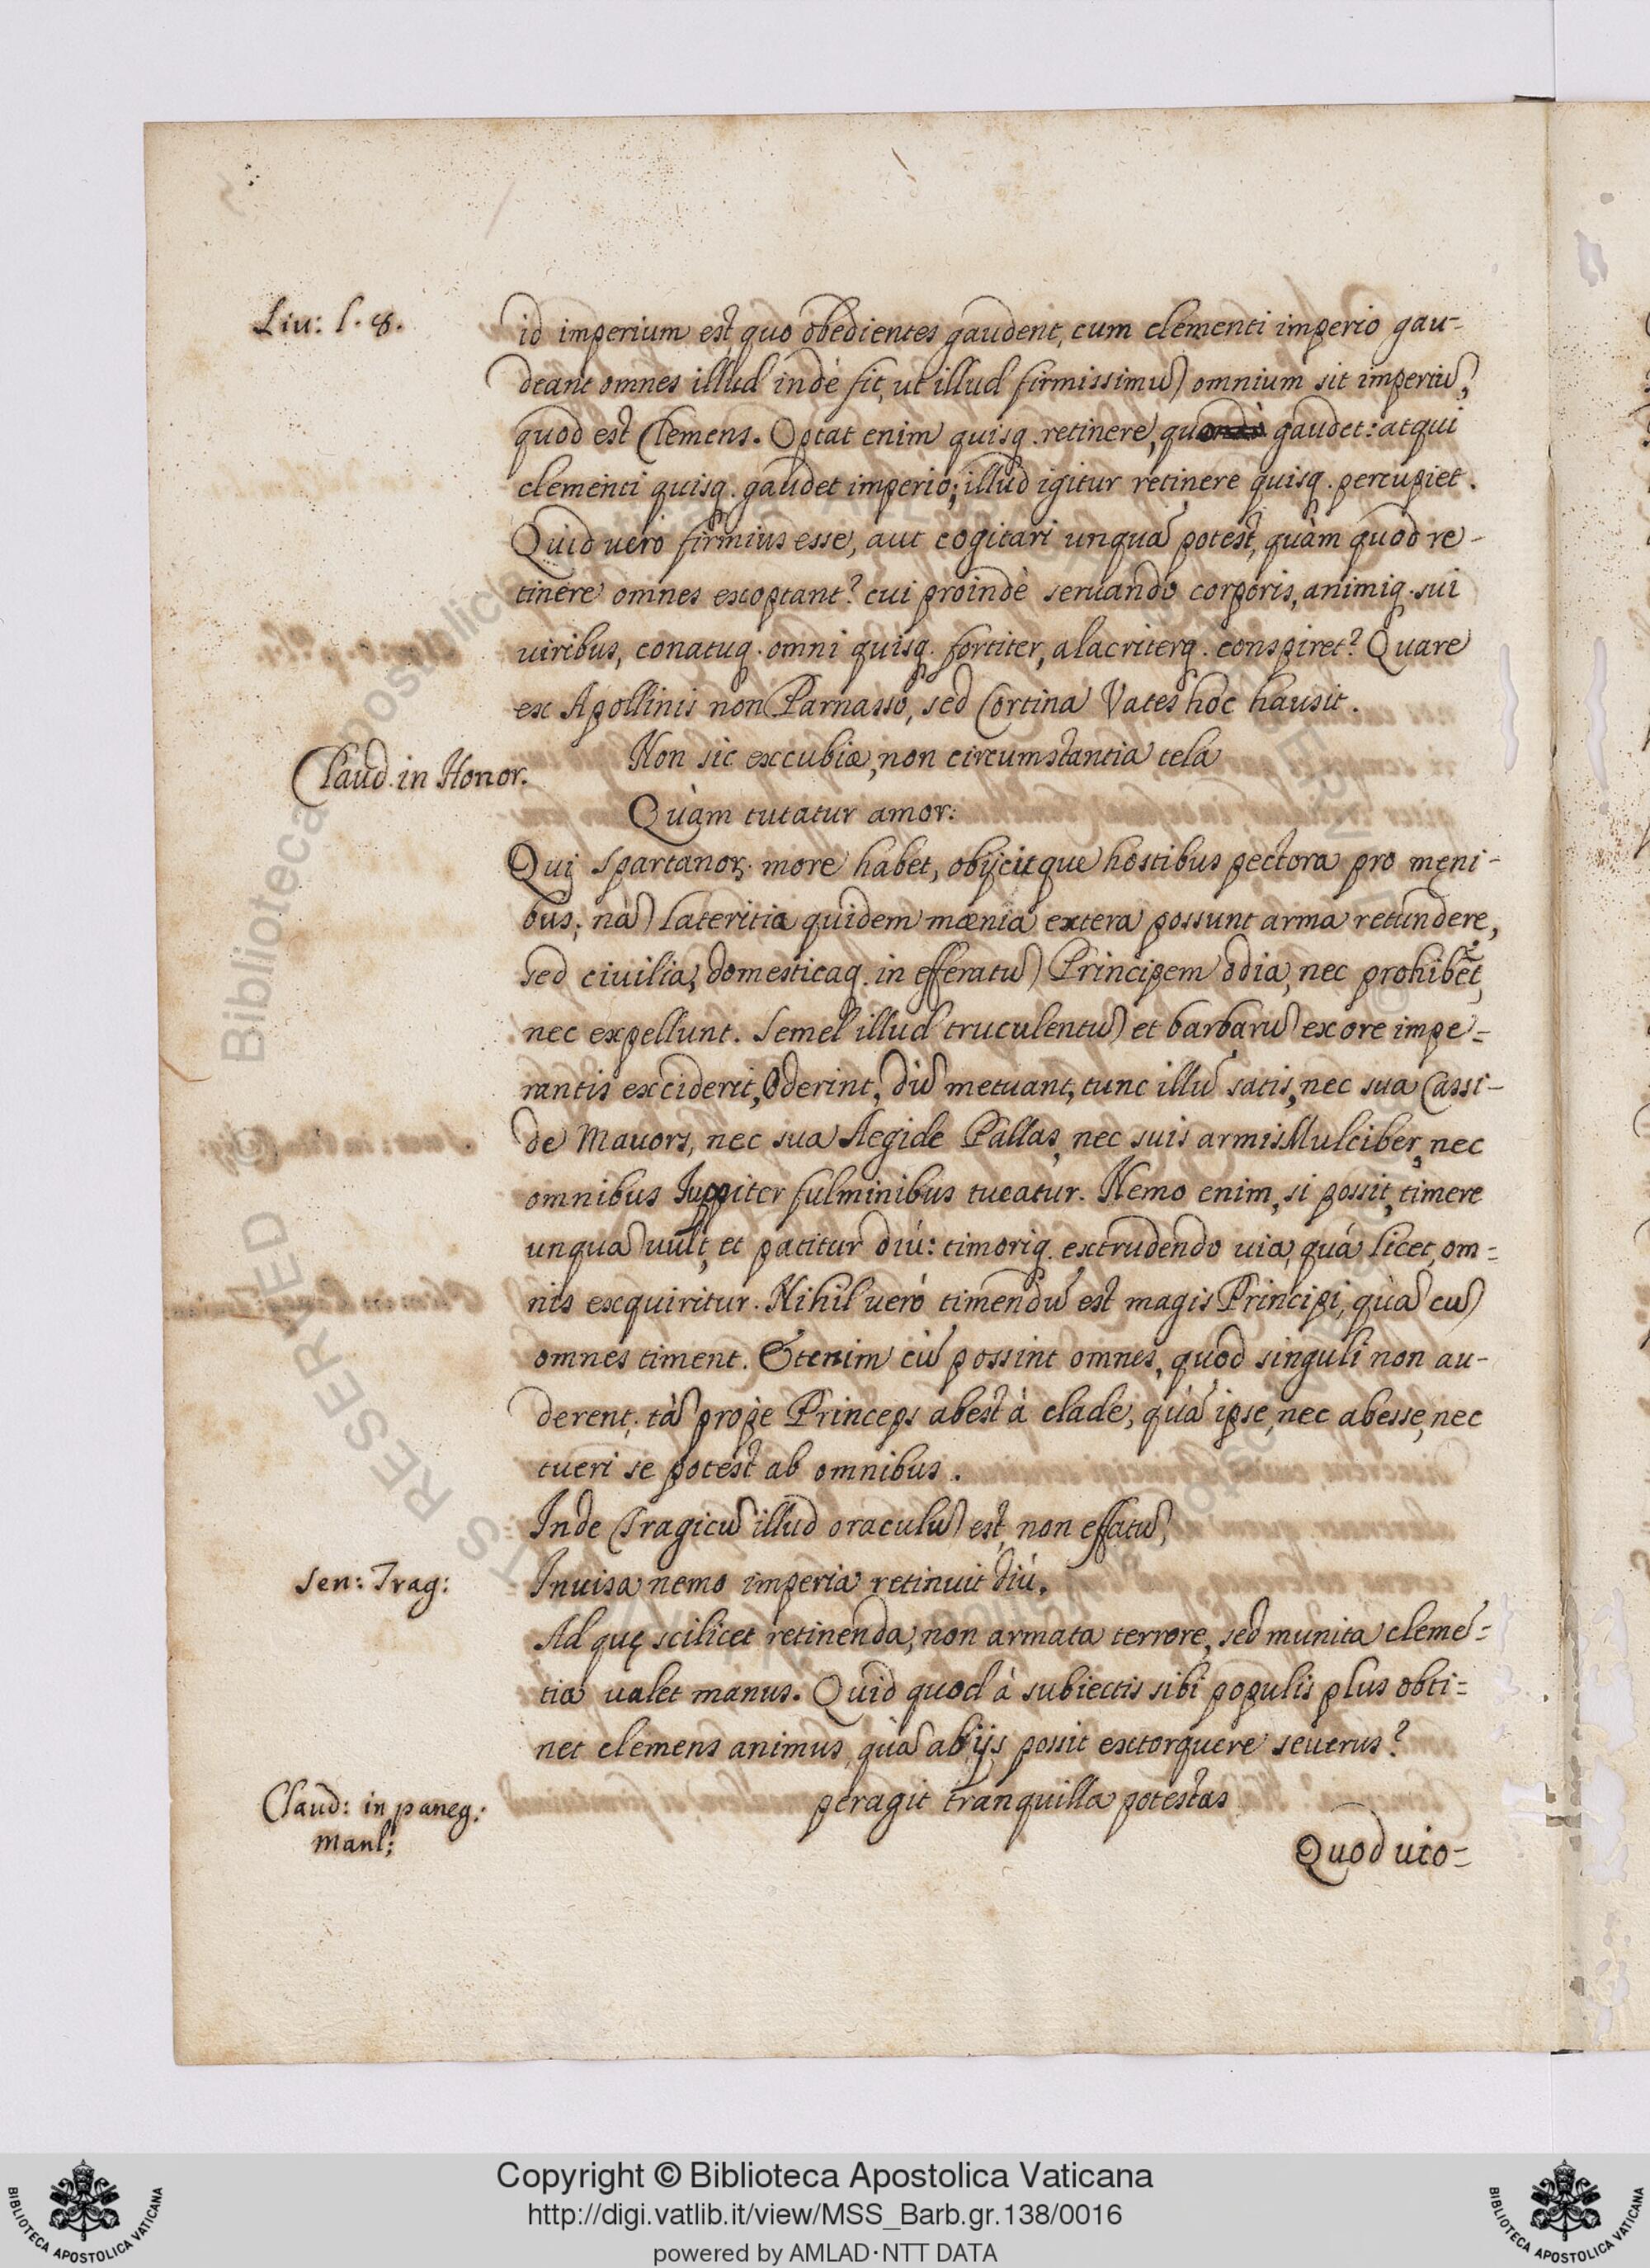 Liu: l. 8.
id imperium est, quo obedientes gaudent, cum clementi imperio gau-
deant omnes illud indè fit, ut illud firmissimũ omnium sit imperiũ,
quod est Clemens. Optat enim quisq. retinere, quo gaudet: atqui
clementi quisq. gaudet imperio; illud igitur retinere quisq. percupiet.
Quid uero firmius esse, aut cogitari unquã potest, quàm quod re-
tinere omnes exoptant? cui proindè seruando corporis, animiq. sui
uiribus, conatuq. omni quisq. fortiter, alacriterq. conspiret? Quare
ex Apollinis non Parnasso, sed Cortina Vates hoc hausit.
Claud. in Honor.
Non sic excubiæ, non circumstantia tela
Quàm tutatur amor:
Qui Spartanoꝝ more habet, obijcitque hostibus pectora pro męni-
bus; nã lateritia quidem mœnia extera possunt arma retundere,
sed ciuilia, domesticaq. in efferatũ Principem odia, nec prohibẽt,
nec expellunt. Semel illud truculentũ et barbarũ ex ore impe-
rantis exciderit, Oderint, dũ metuant, tunc illũ satis, nec sua Cassi-
de Mauors, nec sua Aegide Pallas, nec suis armis Mulciber, nec
omnibus Juppiter fulminibus tueatur. Nemo enim, si possit, timere
unquã uult, et patitur diù: timoriq. extrudendo uia, quá licet, om-
nis exquiritur. Nihil ueró timendũ est magis Principi, quã cũ
omnes timent. Etenim cũ possint omnes, quod singuli non au-
derent, tã prope Princeps abest à clade, quã ipse, nec abesse, nec
tueri se potest ab omnibus.
Inde Tragicũ illud oraculũ est, non effatũ,
Sen: Trag:
Inuisa nemo imperia retinuit diú.
Ad quę scilicet retinenda, non armata terrore, sed munita clemẽ-
tia ualet manus. Quid quod à subiectis sibi populis plus obti-
net clemens animus, quã ab ijs possit extorquere seuerus?
Claud: in paneg:
Manl:
peragit tranquilla potestas
Quod uio-
Copyright © Biblioteca Apostolica Vaticana
http://digi.vatlib.it/view/MSS_Barb.gr.138/0016
powered by AMLAD·NTT DATA
BIBLIOTECA APOSTOLICA VATICANA
BIBLIOTECA APOSTOLICA VATICANA